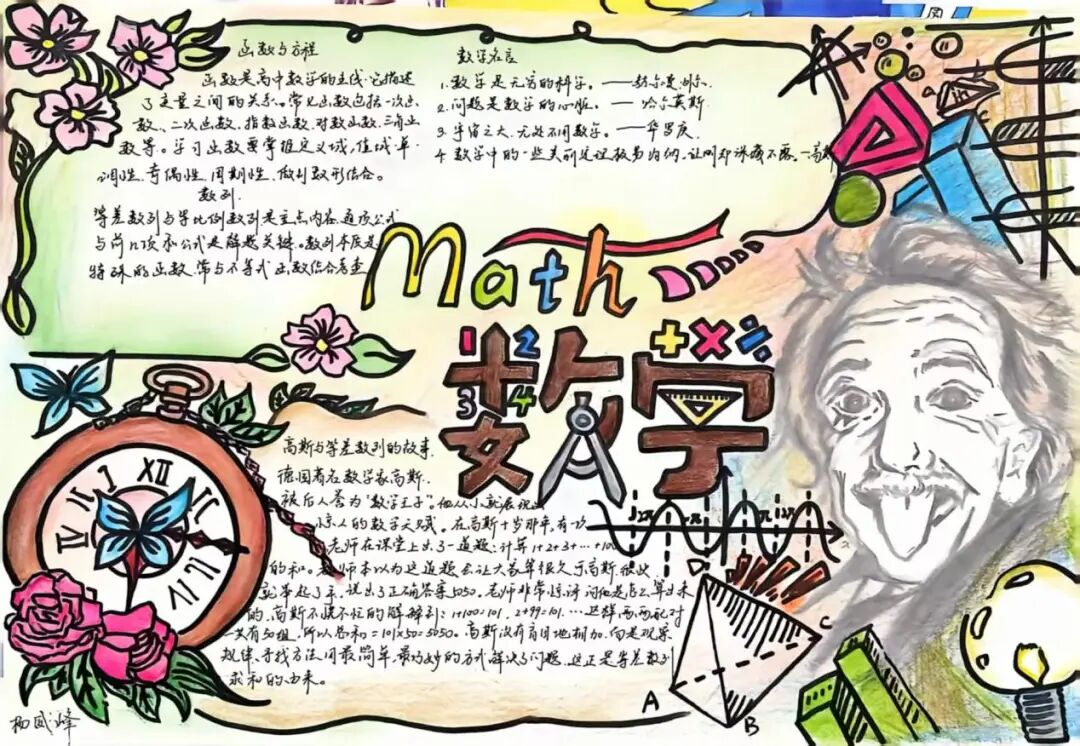 函数与方程
函数是高中数学的主线,它描述
了变量之间的关系。常见函数包括一次函
数、二次函数、指数函数、对数函数、三角函
数等。学习函数要掌握定义域,值域、单
调性、奇偶性、周期性、做到数形结合。
数列
等差数列与等比例数列是重点内容,通项公式
与前n项和公式是解题关键。数列本质是
特殊的函数,常与不等式函数结合考查
数学名言
1.数学是无穷的科学。——赫尔曼外尔.
2.问题是数学的心脏。—— 哈尔莫斯
3.宇宙之大,无处不用数学。——华罗庚.
4.数学中的一些美丽定理极易归纳,让
math
1 2
3 4
+ × ÷
数学
高斯与等差数列的故事.
德国著名数学家高斯.
被后人誉为"数学王子"。他从小就展现出
惊人的数学天赋。在高斯十岁那年,有一次
老师在课堂上出了一道题:计算1+2+3+…+100
的和。老师本以为这道题会让大家算很久,可高斯很快
就举起了手,说出了正确答案5050。老师非常惊讶,问他是怎么算出来
的,高斯不慌不忙的解释到:1+100=101,2+99=101,…这样两两配对
一共有50组,所以总和=101×50=5050。高斯没有盲目地相加,而是观察
规律、寻找方法,用最简单、最巧妙的方式解决了问题,这正是等差数列
求和的由来。
XII
D
C
A
B